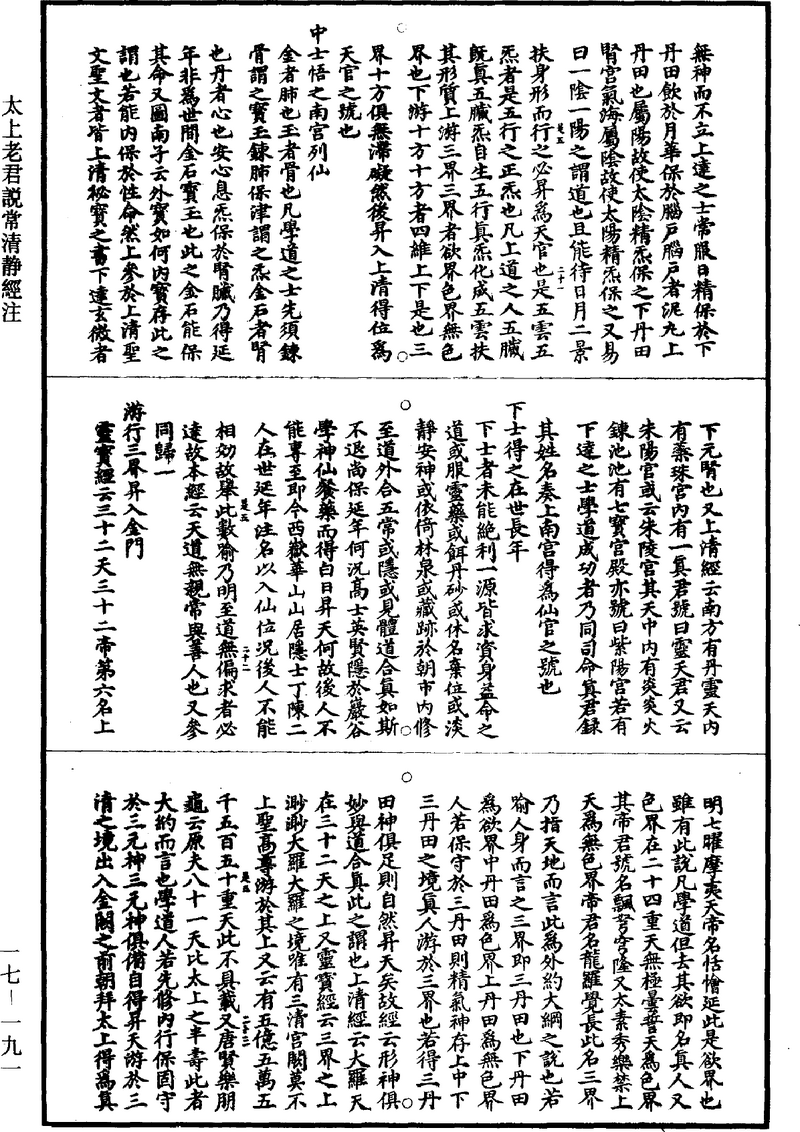 太上老君説常清静經注
無神而不立上達之士常服日精保於下
丹田飲於月華保於腦戶腦戶者泥丸上
丹田也屬陽故使太陰精炁保之下丹田
腎宮氣海屬陰故使太陽精炁保之又易
曰一陰一陽之謂道也且能待日月二景
扶身形而行之必昇爲天官也是五雲五
炁者是五行之正炁也凡上道之人五臟
旣真五臟炁自生五行真炁化成五雲扶
其形質上游三界三界者欲界色界無色
界也下游十方十方者四維上下是也三
界十方俱無滯礙然後昇入上清得位爲
天官之號也
中士悟之南宮列仙
金者肺也玉者骨也凡學道之士先須鍊
骨謂之寶玉鍊肺保津謂之炁金石者腎
也丹者心也安心息炁保於腎臟乃得延
年非爲世間金石寶玉也此之金石能保
其命又圖南子云外寶如何内寶存此之
謂也若能内保於性命然上參於上清聖
文聖文者皆上清秘寶之書下達玄微者
下元腎也又上清經云南方有丹靈天内
有蘂珠宮内有一真君號曰靈天君又云
朱陽宮或云朱陵宮其天中内有炎炎火
鍊池池有七寶宮殿亦號曰紫陽宮若有
下達之士學道成功者乃同司命真君録
其姓名奏上南宮得爲仙官之號也
下士得之在世長年
下士者未能絶利一源皆求資身益命之
道或服靈藥或餌丹砂或休名棄位或淡
靜安神或依倚林泉或藏跡於朝市内修
至道外合五常或隱或見體道合真如斯
不退尚保延年何況高士英賢隱於巖谷
學神仙餐藥而得白日昇天何故後人不
能專至即今西嶽華山山居隱士丁陳二
人在世延年注名以入仙位況後人不能
相効故舉此數喻乃明至道無偏求者必
達故本經云天道無親常與善人也又參
同歸一
游行三界昇入金門
靈寶經云三十二天三十二帝第六名上
明七曜摩夷天帝名恬憺延此是欲界也
雖有此說凡學道但去其欲即名真人又
色界在二十四重天無極曇誓天爲色界
其帝君號名飄弩穹隆又太素秀樂禁上
天爲無色界帝君名龍羅覺長此名三界
乃指天地而言此爲外約大綱之說也若
喻人身而言之三界即三丹田也下丹田
爲欲界中丹田爲色界上丹田爲無色界
人若保守於三丹田則精氣神存上中下
三丹田之境真人游於三界也若得三丹
田神俱足則自然昇天矣故經云形神俱
妙與道合真此之謂也上清經云大羅天
在三十二天之上又靈寶經云三界之上
渺渺大羅大羅之境唯有三清宮闕莫不
上聖高尊游於其上又云有五億五萬五
千五百五十重天此不具載又唐賢樂朋
龜云原夫八十一天比太上之半壽此者
大約而言也學道人若先修内行保固守
於三元神三元神俱備自得昇天游於三
清之境出入金闕之前朝拜太上得爲真
一七－一九一